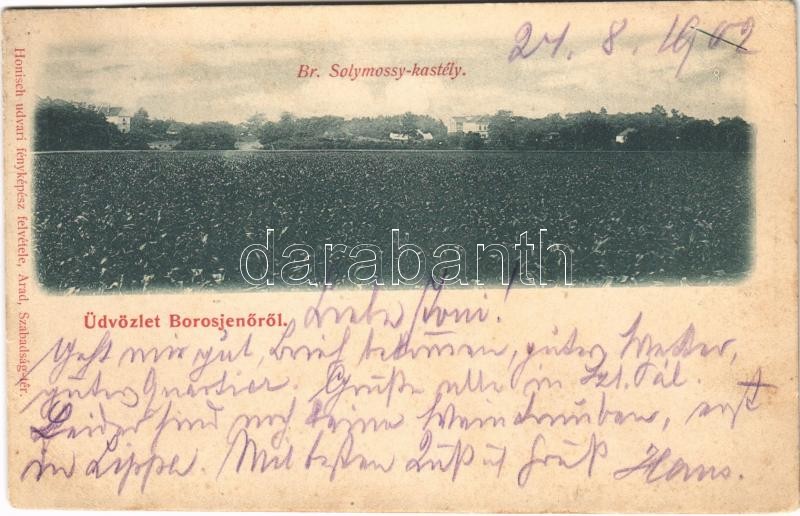 24. 8. 1902
Br. Solymossy-kastély.
Honisch udvari fényképész felvétele, Arad, Szabadság-tér.
darabanth
Üdvözlet Borosjenőről.
Liebe Toni!
Geht mir gut, Brief bekommen, gutes Wetter,
gutes Quartier. Grüße alle in Szt. Pál.
Leider sind noch keine Weintrauben, erst
in Lippa. Mit besten Kuß u Gruß Hans.